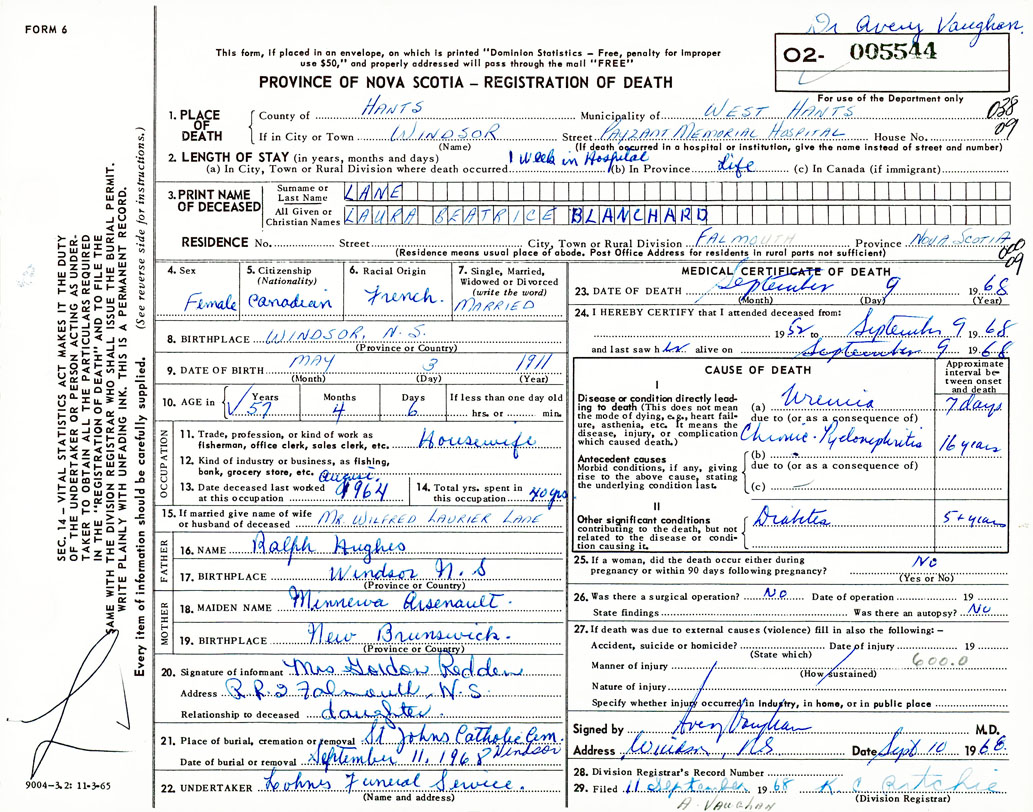 Dr Avery Vaughan
FORM 6
This form, if placed in an envelope, on which is printed "Dominion Statistics – Free, penalty for improper
use $50," and properly addressed will pass through the mail "FREE"
O2- 005544
PROVINCE OF NOVA SCOTIA – REGISTRATION OF DEATH
For use of the Department only
038
09
1. PLACE OF DEATH
County of HANTS Municipality of WEST HANTS
If in City or Town WINDSOR Street PAYZANT MEMORIAL HOSPITAL House No.
(Name) (If death occurred in a hospital or institution, give the name instead of street and number)
2. LENGTH OF STAY (in years, months and days)
(a) In City, Town or Rural Division where death occurred 1 Week in Hospital (b) In Province Life (c) In Canada (if immigrant)
3. PRINT NAME OF DECEASED
Surname or Last Name LANE
All Given or Christian Names LAURA BEATRICE BLANCHARD
RESIDENCE No. Street City, Town or Rural Division FALMOUTH Province NOVA SCOTIA
(Residence means usual place of abode. Post Office Address for residents in rural parts not sufficient)
000
09
4. Sex Female
5. Citizenship (Nationality) Canadian
6. Racial Origin French.
7. Single, Married, Widowed or Divorced (write the word) MARRIED
8. BIRTHPLACE WINDSOR, N.S.
(Province or Country)
9. DATE OF BIRTH MAY 3 1911
(Month) (Day) (Year)
10. AGE in Years 57 Months 4 Days 6 If less than one day old hrs. or min.
OCCUPATION
11. Trade, profession, or kind of work as
fisherman, office clerk, sales clerk, etc. Housewife
12. Kind of industry or business, as fishing,
bank, grocery store, etc.
13. Date deceased last worked
at this occupation August 1964
14. Total yrs. spent in
this occupation 40 yrs
15. If married give name of wife
or husband of deceased MR. WILFRED LAURIER LANE
FATHER
16. NAME Ralph Hughes
17. BIRTHPLACE Windsor N.S
(Province or Country)
MOTHER
18. MAIDEN NAME Minnewa Arsenault.
19. BIRTHPLACE New Brunswick.
(Province or Country)
20. Signature of informant Mrs Gordon Redden
Address R.R.2 Falmouth, N.S.
Relationship to deceased daughter.
21. Place of burial, cremation or removal St Johns Catholic Cem. Windsor
Date of burial or removal September 11, 1968
22. UNDERTAKER Lohnes Funeral Service.
(Name and address)
MEDICAL CERTIFICATE OF DEATH
23. DATE OF DEATH September 9 1968
(Month) (Day) (Year)
24. I HEREBY CERTIFY that I attended deceased from:
1952 to September 9 1968
and last saw her alive on September 9 1968
CAUSE OF DEATH
Approximate interval between onset and death
I
Disease or condition directly leading to death (This does not mean
the mode of dying, e.g., heart failure, asthenia, etc. It means the
disease, injury, or complication
which caused death.)
(a) Uremia 7 days
due to (or as a consequence of)
Chronic Pyelonephritis 16 years
Antecedent causes
Morbid conditions, if any, giving
rise to the above cause, stating
the underlying condition last.
(b)
due to (or as a consequence of)
(c)
II
Other significant conditions
contributing to the death, but not
related to the disease or condition causing it.
Diabetes 5+ years
25. If a woman, did the death occur either during
pregnancy or within 90 days following pregnancy? No
(Yes or No)
26. Was there a surgical operation? No Date of operation 19
State findings Was there an autopsy? No
27. If death was due to external causes (violence) fill in also the following: –
Accident, suicide or homicide? Date of injury 19
(State which)
600.0
Manner of injury
(How sustained)
Nature of injury
Specify whether injury occurred in Industry, in home, or in public place
Signed by Avery Vaughan M.D.
Address Windsor, N.S Date Sept 10 1968
28. Division Registrar's Record Number
29. Filed 11 September 1968 K. C Ritchie
(Division Registrar)
A. Vaughan
SEC. 14 – VITAL STATISTICS ACT MAKES IT THE DUTY
OF THE UNDERTAKER OR PERSON ACTING AS UNDERTAKER TO OBTAIN ALL THE PARTICULARS REQUIRED
IN THE "REGISTRATION OF DEATH" AND TO FILE THE
SAME WITH THE DIVISION REGISTRAR WHO SHALL ISSUE THE BURIAL PERMIT.
WRITE PLAINLY WITH UNFADING INK. THIS IS A PERMANENT RECORD.
Every item of information should be carefully supplied. (See reverse side for instructions.)
9004-3.2: 11-3-65